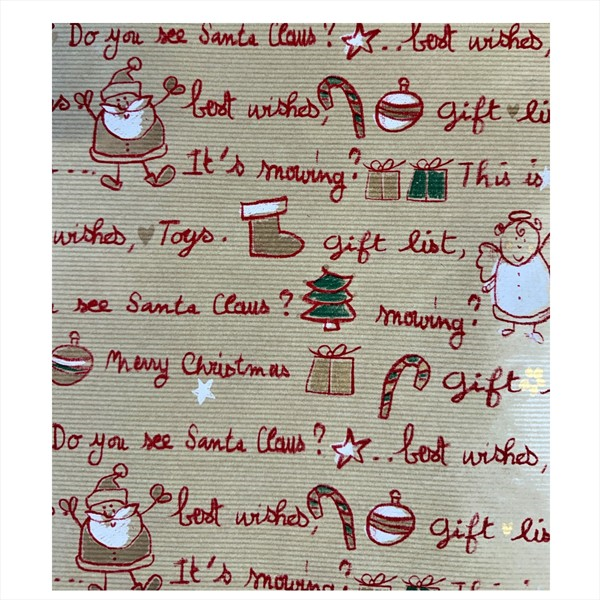 Do you see Santa Claus? ..best wishes,
s best wishes, gift li
.... It's snowing? This is
wishes, Toys. gift list,
see Santa Claus? snowing?
Merry Christmas gift
Do you see Santa Claus? ..best wishes,
best wishes, gift lis
... It's snowing? This is